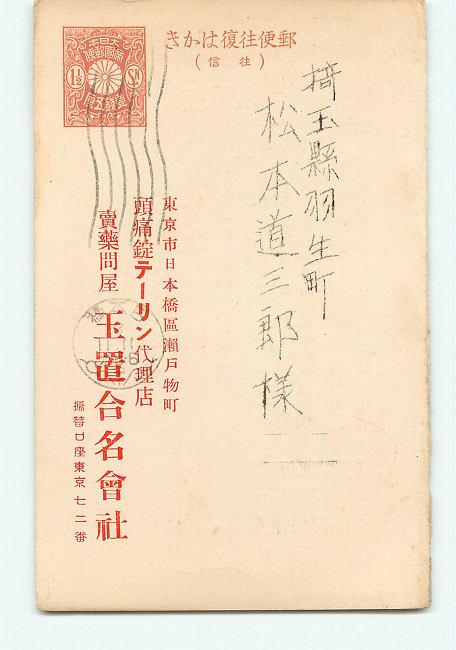 郵便往復はかき
（往信）
大日本
帝國郵便
1½ Sⁿ
壹錢五厘
埼玉縣羽生町
松本道三郎様
東京市日本橋區瀬戸物町
頭痛錠テーリン代理店
賣藥問屋
玉置合名會社
振替口座東京七二番